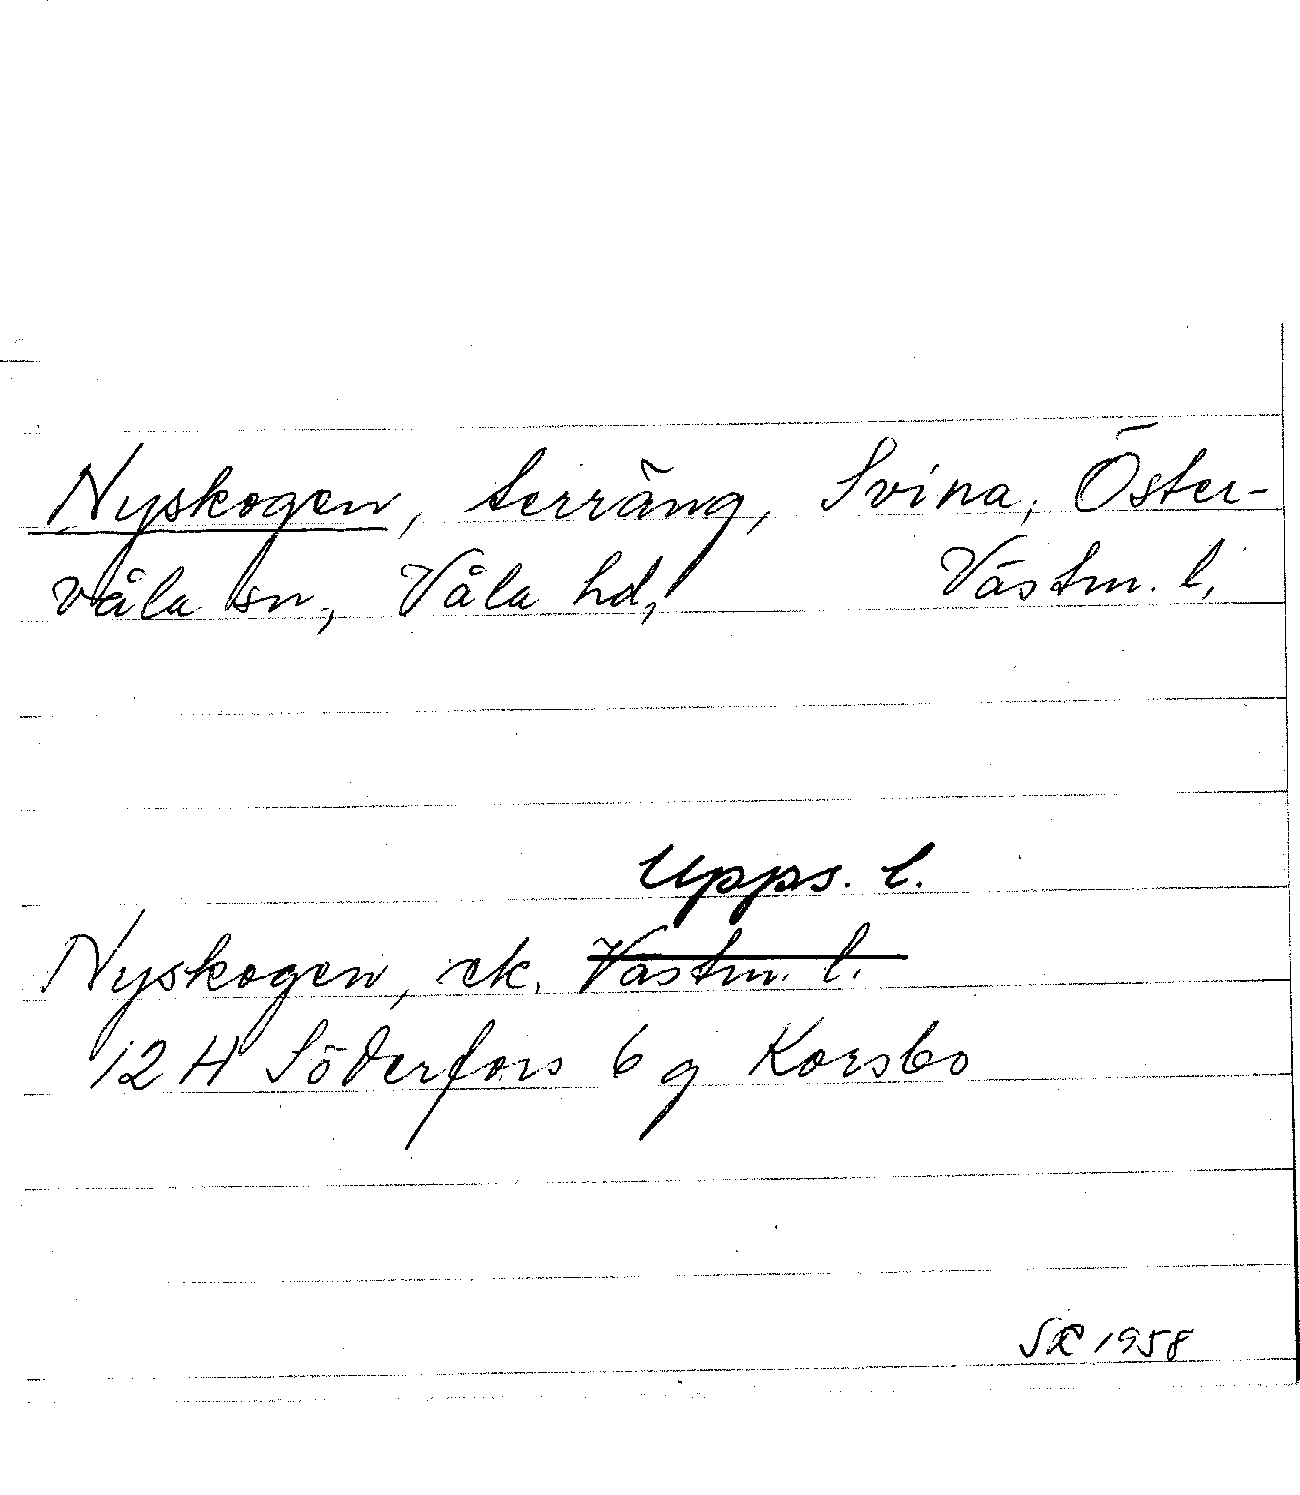 Nyskogen, terräng, Svina, Öster-
våla sn, Våla hd, Västm. l.
Upps. l.
Nyskogen, ek. Västm. l.
12 H Söderfors 6 g Korsbo
1958